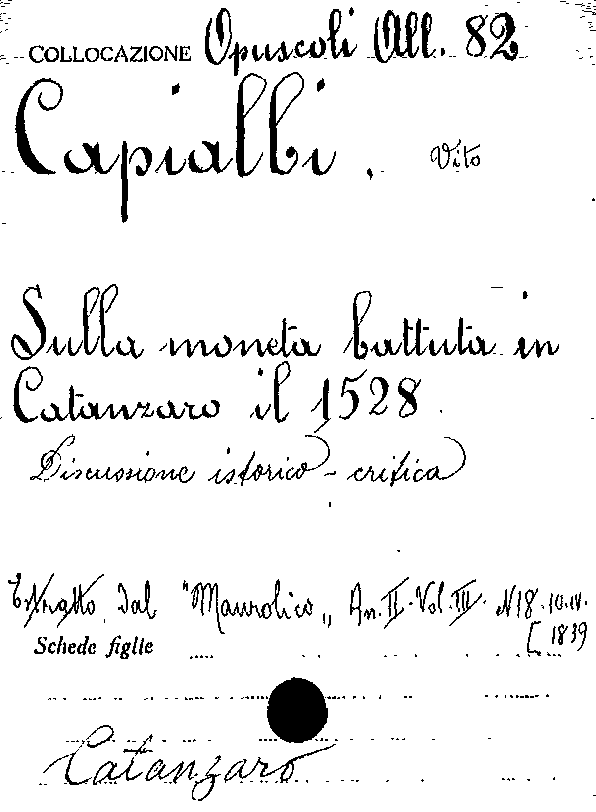 COLLOCAZIONE Opuscoli All. 82
Capialbi, Vito
Sulla moneta battuta in
Catanzaro il 1528.
Discussione istorico-critica
Estratto dal "Maurolico„ An. II. Vol. III. N 18. 10. IV.
[1839
Schede figlie
Catanzaro